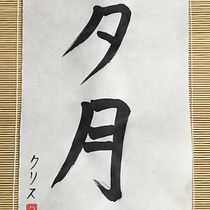 夕月
クリス